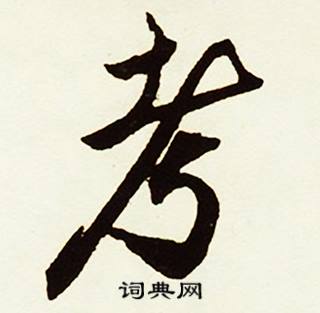 考
词典网